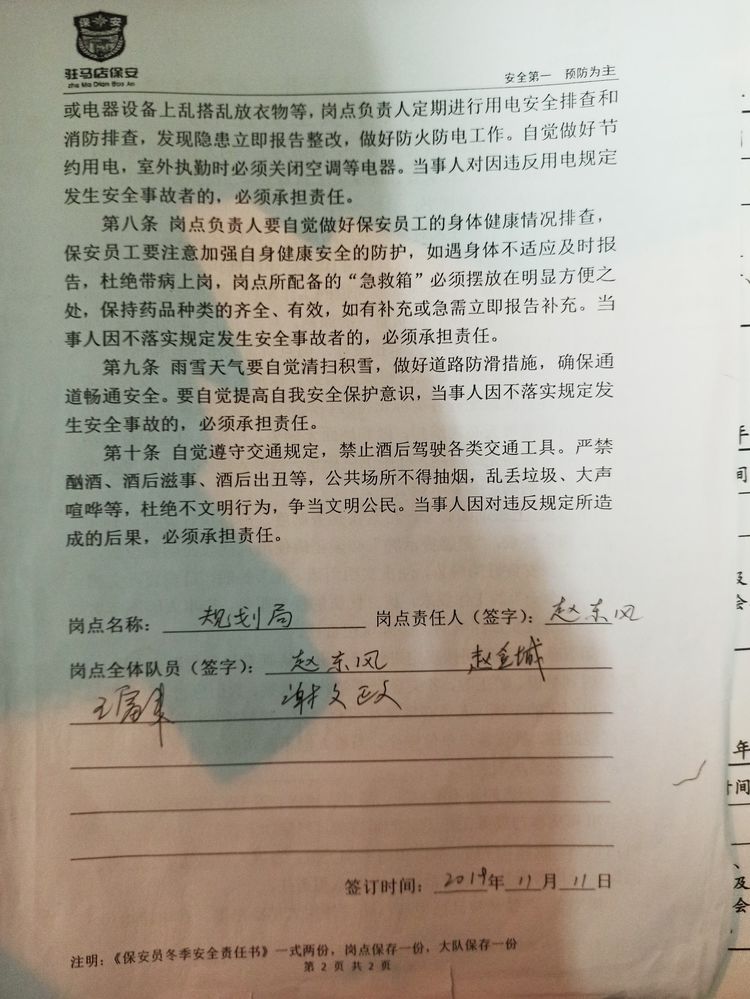 保 安
驻马店保安
zhu Ma Dian Bao An
安全第一 预防为主
或电器设备上乱搭乱放衣物等，岗点负责人定期进行用电安全排查和
消防排查，发现隐患立即报告整改，做好防火防电工作。自觉做好节
约用电，室外执勤时必须关闭空调等电器。当事人对因违反用电规定
发生安全事故者的，必须承担责任。
第八条 岗点负责人要自觉做好保安员工的身体健康情况排查，
保安员工要注意加强自身健康安全的防护，如遇身体不适应及时报
告，杜绝带病上岗，岗点所配备的“急救箱”必须摆放在明显方便之
处，保持药品种类的齐全、有效，如有补充或急需立即报告补充。当
事人因不落实规定发生安全事故者的，必须承担责任。
第九条 雨雪天气要自觉清扫积雪，做好道路防滑措施，确保通
道畅通安全。要自觉提高自我安全保护意识，当事人因不落实规定发
生安全事故的，必须承担责任。
第十条 自觉遵守交通规定，禁止酒后驾驶各类交通工具。严禁
酗酒、酒后滋事、酒后出丑等，公共场所不得抽烟，乱丢垃圾、大声
喧哗等，杜绝不文明行为，争当文明公民。当事人因对违反规定所造
成的后果，必须承担责任。
岗点名称：规划局 岗点责任人（签字）：赵东风
岗点全体队员（签字）：赵东风 赵金城
谢文政
签订时间：2019年11月11日
注明：《保安员冬季安全责任书》一式两份，岗点保存一份，大队保存一份
第 2 页 共 2 页
年
间
及
会
年
间
及
会